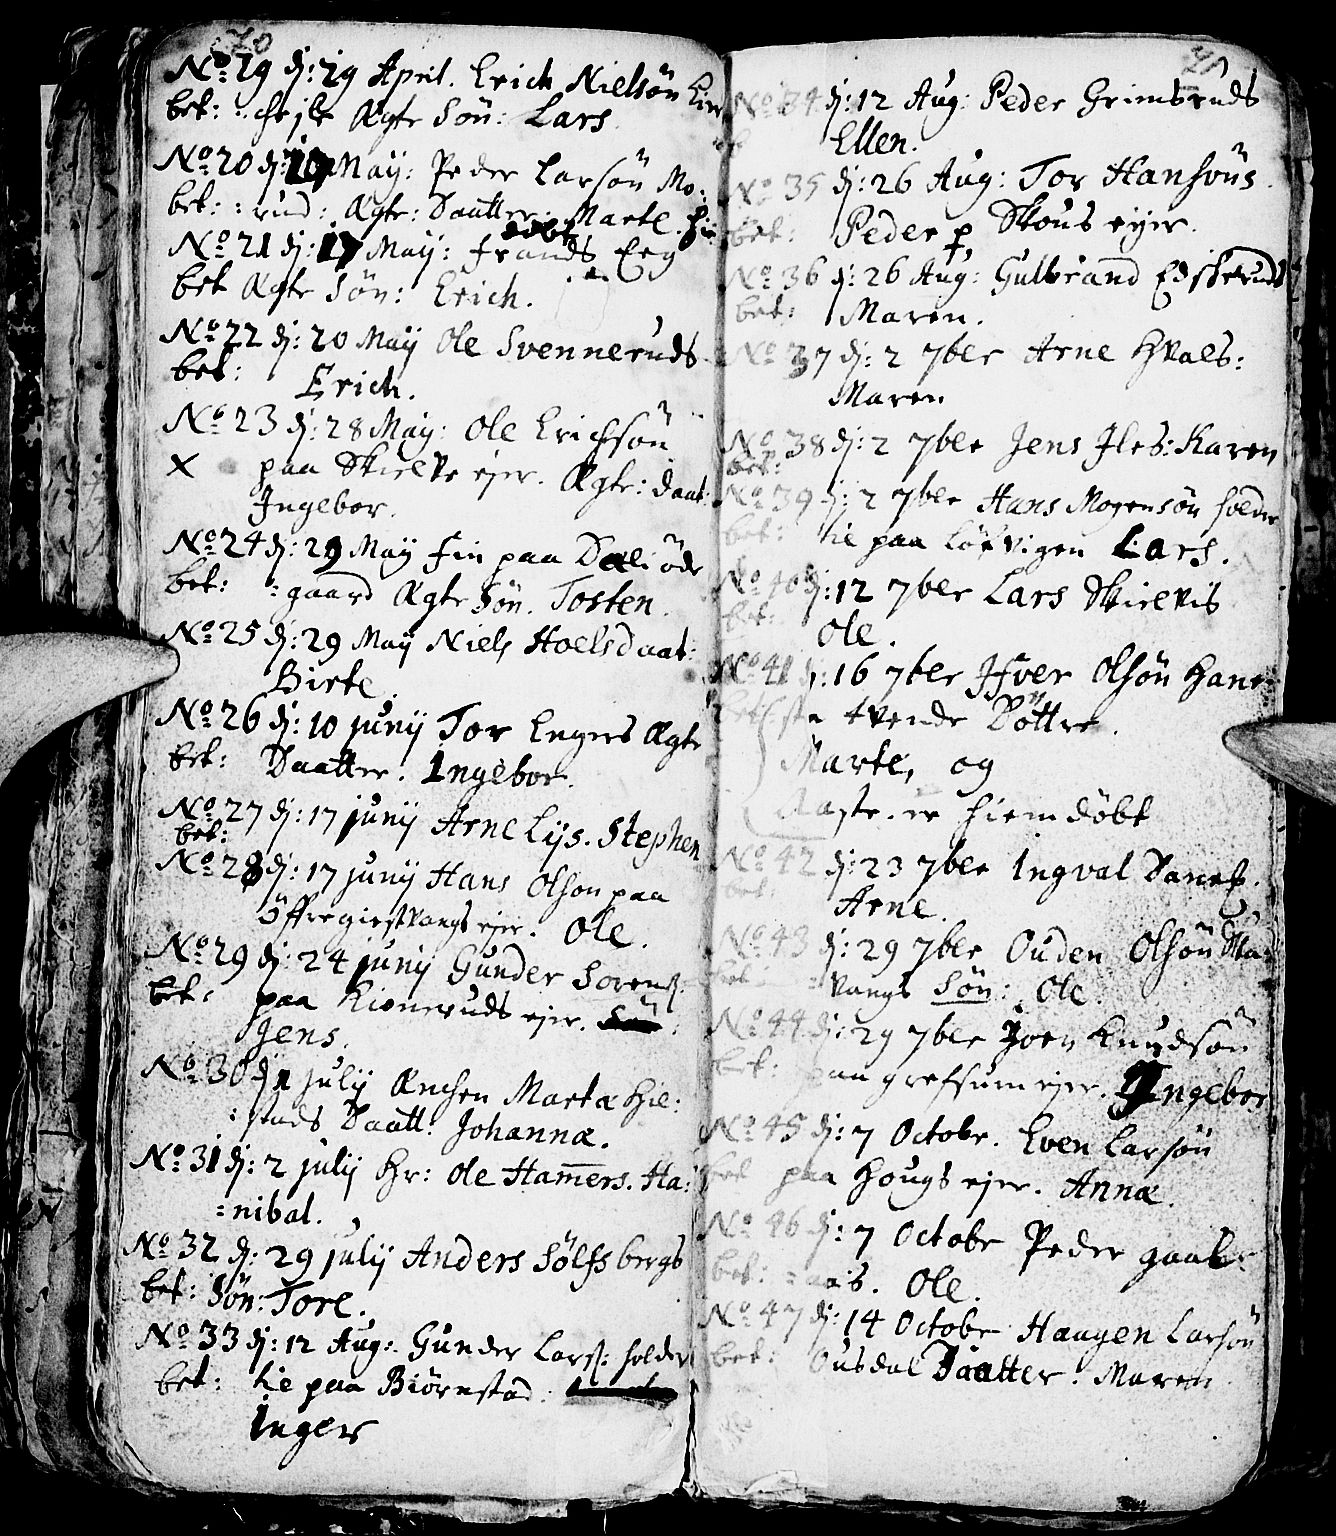 70
No 19 dj: 29 April. Erich Nielsön Kir
bet: : chejle Ægte Sön: Lars
No 20 dj: May: Peder Larsön Mo:
bet: : rud: Ægte: Daatter. Marte.
No 21 dj: 17 May: frands Eeg
bet Ægte Sön: Erich.
No 22 dj: 20 May Ole Svenneruds
bet: Erich.
No 23 dj: 28 May: Ole Erichsön
X paa Skielve ejer. Ægte: daat:
Ingebor.
No 24 dj: 29 May fin paa Dæli öde
bet: : gaard Ægte Sön. Tosten.
No 25 dj: 29 May Niels Hoels daat:
Birte.
No 26 dj: 10 junij Tor Engers Ægte
bet: Daatter. Ingebor.
No 27 dj: 17 junij Arne Lijs. Stephen
bet:
No 28 dj: 17 junij Hans Olson paa
Öffregierstvangs ejer. Ole.
No 29 dj: 24 junij Gunder Sorenss:
bet: paa Kioneruds ejer.
Jens.
No 30 dj 1 julij Enchen Marta Hie:
: stads Daatt: Johanna.
No 31 dj: 2 julij Hr: Ole Hamers. Ha:
: nibal.
No 32 dj: 29 julij Anders Sölfsbergs
bet: Sön: Tore.
No 33 dj: 12 Aug: Gunder Larss: holder
bet: tie paa Biörnstad:
Inger
71
No 34 dj: 12 Aug: Peder Grimsruds
Ellen.
No 35 dj: 26 Aug: Tor Hansöns
bet: Peder p Skous ejer.
No 36 dj: 26 Aug: Gulbrand Edskeruds
bet: Maren.
No 37 dj: 2 7ber Arne Hvals:
Maren
No 38 dj: 2 7ber Jens Iles: Karen
bet:
No 39 dj: 2 7ber Hans Mogensön holder
bet: tie paa Lövvigen Lars.
No 40 dj: 12 7ber Lars Skielvis
bet: Ole.
No 41 dj: 16 7ber Ifver Olsön Hane
bet tvende Döttre.
Marte, og
Aaste. er hiemdöbt
No 42 dj: 23 7ber Ingval Danefs.
bet: Arne.
No 43 dj: 29 7ber Ouden Olsön Sta:
bet: : vangs Sön: Ole.
No 44 dj: 29 7ber Joen Knudsön
bet: paa grefsum ejer. Ingebor
No 45 dj: 7 Octobr. Even Larsön
bet paa Hougs ejer. Anna.
No 46 dj: 7 Octobr Peder gaaR:
bet: : aas. Ole.
No 47 dj: 14 Octobr Haagen Larsön
bet: Ousdal Daatter: Maren